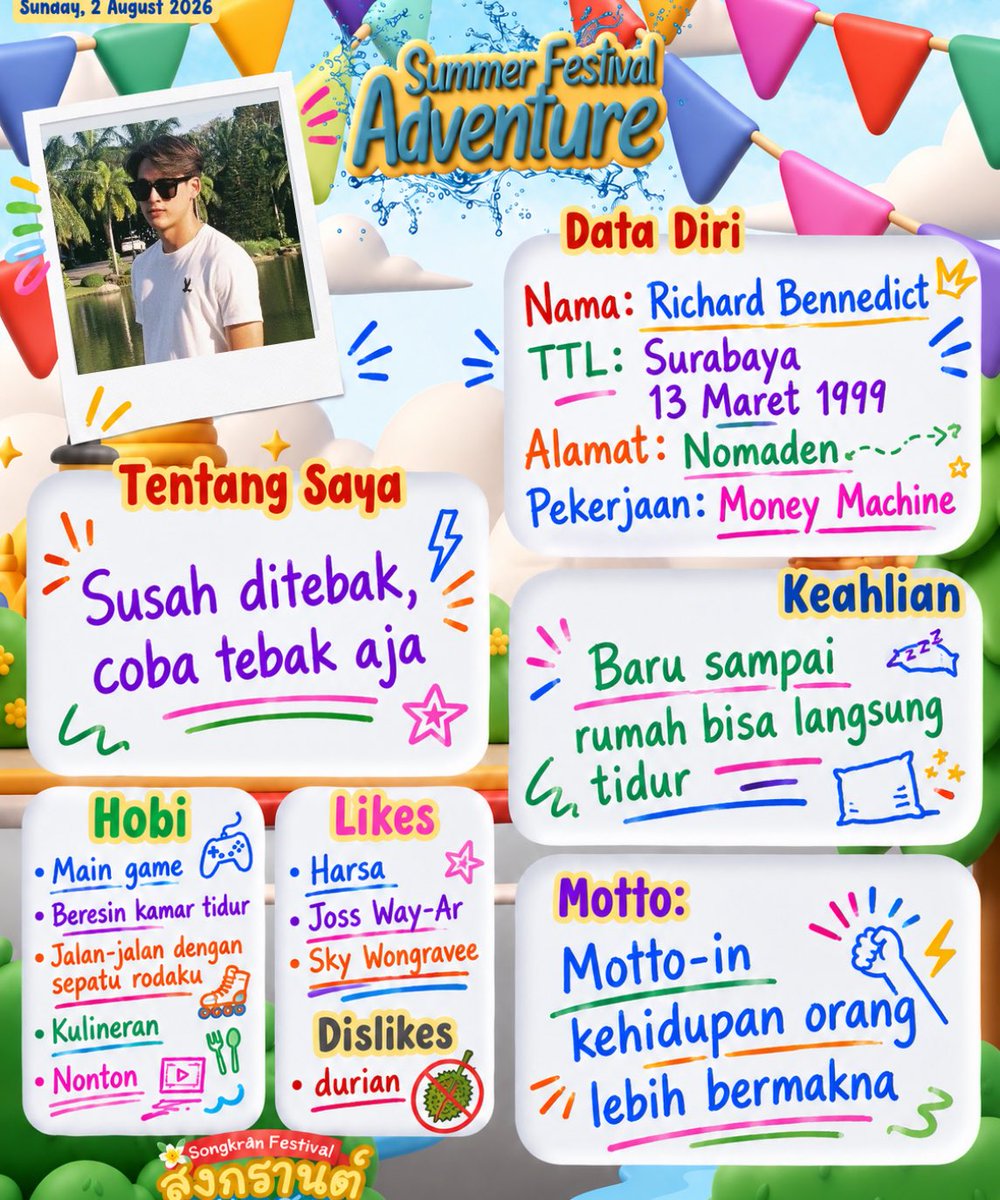 Sunday, 2 August 2026
Summer Festival
Adventure
Data Diri
Nama: Richard Bennedict
TTL: Surabaya
13 Maret 1999
Alamat: Nomaden
Pekerjaan: Money Machine
Tentang Saya
Susah ditebak,
coba tebak aja
Keahlian
Baru sampai
rumah bisa langsung
tidur
zzzz
Hobi
• Main game
• Beresin kamar tidur
• Jalan-jalan dengan
sepatu rodaku
• Kulineran
• Nonton
Likes
• Harsa
• Joss Way-Ar
• Sky Wongravee
Dislikes
• durian
Motto:
Motto-in
kehidupan orang
lebih bermakna
Songkrân Festival
สงกรานต์